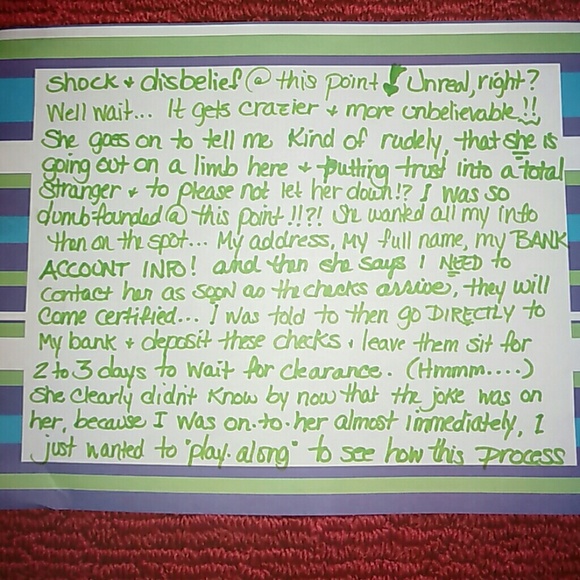 Shock + disbelief @ this point! Unreal, right?
Well wait... It gets crazier + more unbelievable!!
She goes on to tell me kind of rudely, that she is
going out on a limb here + putting trust into a total
stranger + to please not let her down!? I was so
dumb-founded @ this point!!?! She wanted all my info
then on the spot... My address, My full name, my BANK
ACCOUNT INFO! and then she says I NEED to
contact her as soon as the checks arrive, they will
come certified... I was told to then go DIRECTLY to
My bank + deposit these checks + leave them sit for
2 to 3 days to wait for clearance. (Hmmm....)
She clearly didn't know by now that the joke was on
her, because I was on-to-her almost immediately, I
just wanted to "play-along" to see how this process